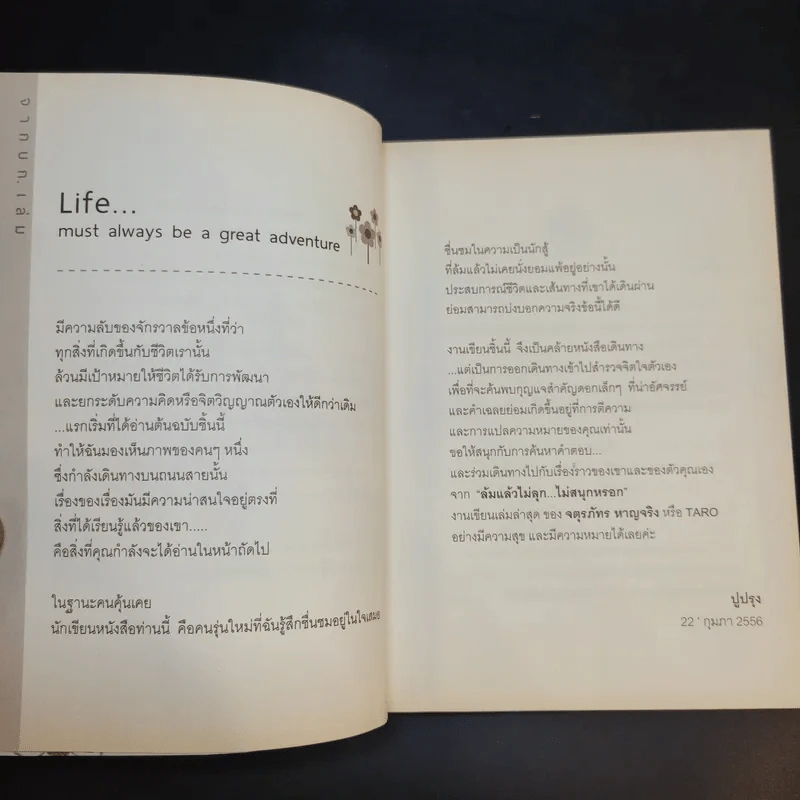 จากบก.เล่ม
Life...
must always be a great adventure
มีความลับของจักรวาลข้อหนึ่งที่ว่า
ทุกสิ่งที่เกิดขึ้นกับชีวิตเรานั้น
ล้วนมีเป้าหมายให้ชีวิตได้รับการพัฒนา
และยกระดับความคิดหรือจิตวิญญาณตัวเองให้ดีกว่าเดิม
...แรกเริ่มที่ได้อ่านต้นฉบับชิ้นนี้
ทำให้ฉันมองเห็นภาพของคนๆ หนึ่ง
ซึ่งกำลังเดินทางบนถนนสายนั้น
เรื่องของเรื่องมันมีความน่าสนใจอยู่ตรงที่
สิ่งที่ได้เรียนรู้แล้วของเขา.....
คือสิ่งที่คุณกำลังจะได้อ่านในหน้าถัดไป
ในฐานะคนคุ้นเคย
นักเขียนหนังสือท่านนี้ คือคนรุ่นใหม่ที่ฉันรู้สึกชื่นชมอยู่ในใจเสมอ
ชื่นชมในความเป็นนักสู้
ที่ล้มแล้วไม่เคยนั่งยอมแพ้อยู่อย่างนั้น
ประสบการณ์ชีวิตและเส้นทางที่เขาได้เดินผ่าน
ย่อมสามารถบ่งบอกความจริงข้อนี้ได้ดี
งานเขียนชิ้นนี้ จึงเป็นคล้ายหนังสือเดินทาง
...แต่เป็นการออกเดินทางเข้าไปสำรวจจิตใจตัวเอง
เพื่อที่จะค้นพบกุญแจสำคัญดอกเล็กๆ ที่น่าอัศจรรย์
และคำเฉลยย่อมเกิดขึ้นอยู่ที่การตีความ
และการแปลความหมายของคุณเท่านั้น
ขอให้สนุกกับการค้นหาคำตอบ...
และร่วมเดินทางไปกับเรื่องราวของเขาและของตัวคุณเอง
จาก "ล้มแล้วไม่ลุก...ไม่สนุกหรอก"
งานเขียนเล่มล่าสุด ของ จตุรภัทร หาญจริง หรือ TARO
อย่างมีความสุข และมีความหมายได้เลยค่ะ
ปูปรุง
22 ' กุมภา 2556